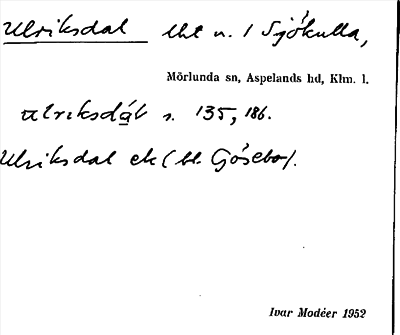 Ulriksdal lht u. 1 Sjökulla,
Mörlunda sn, Aspelands hd, Klm. l.
ulriksdál s. 135, 186.
Ulriksdal ek (bl. Gösebo).
Ivar Modéer 1952